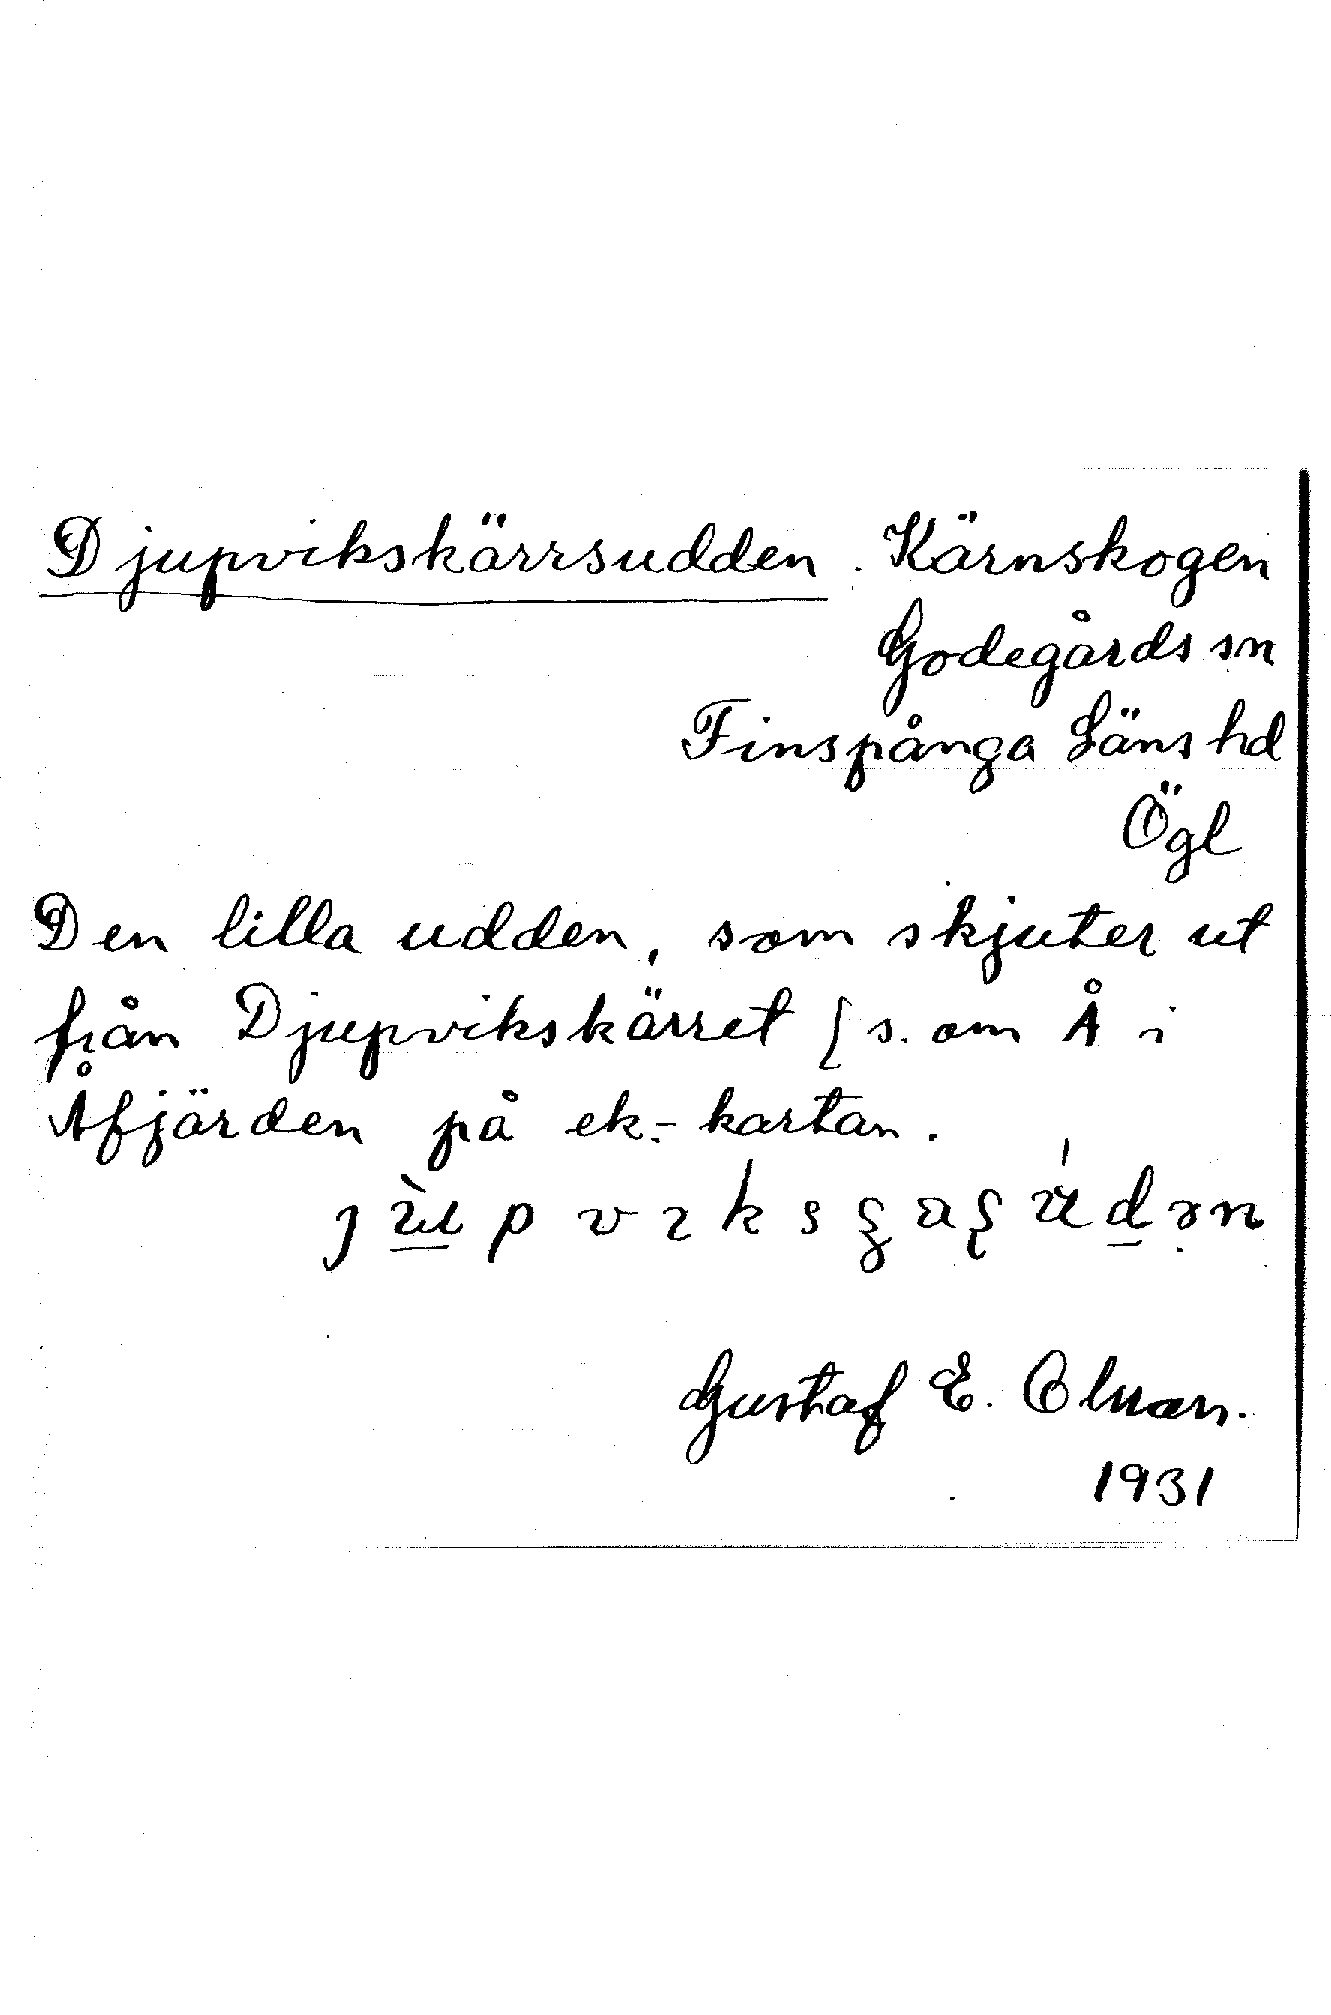 Djupvikskärrsudden. Kärnskogen
Godegårds sn
Finspånga Läns hd
Ögl
Den lilla udden, som skjuter ut
från Djupvikskärret [s. om Å i
Åfjärden på ek.-kartan.
Gustaf E.
1931